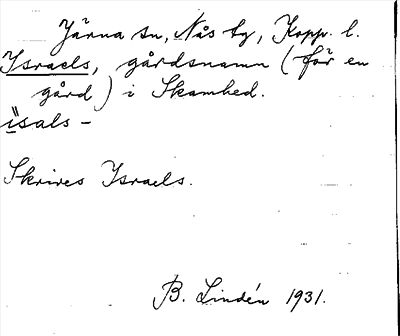 Järna sn, Nås tg, Kopp. l.
Israels, gårdsnamn (för en
gård) i Skamhed.
ïsals-
Skrives Israels.
B. Lindén 1931.